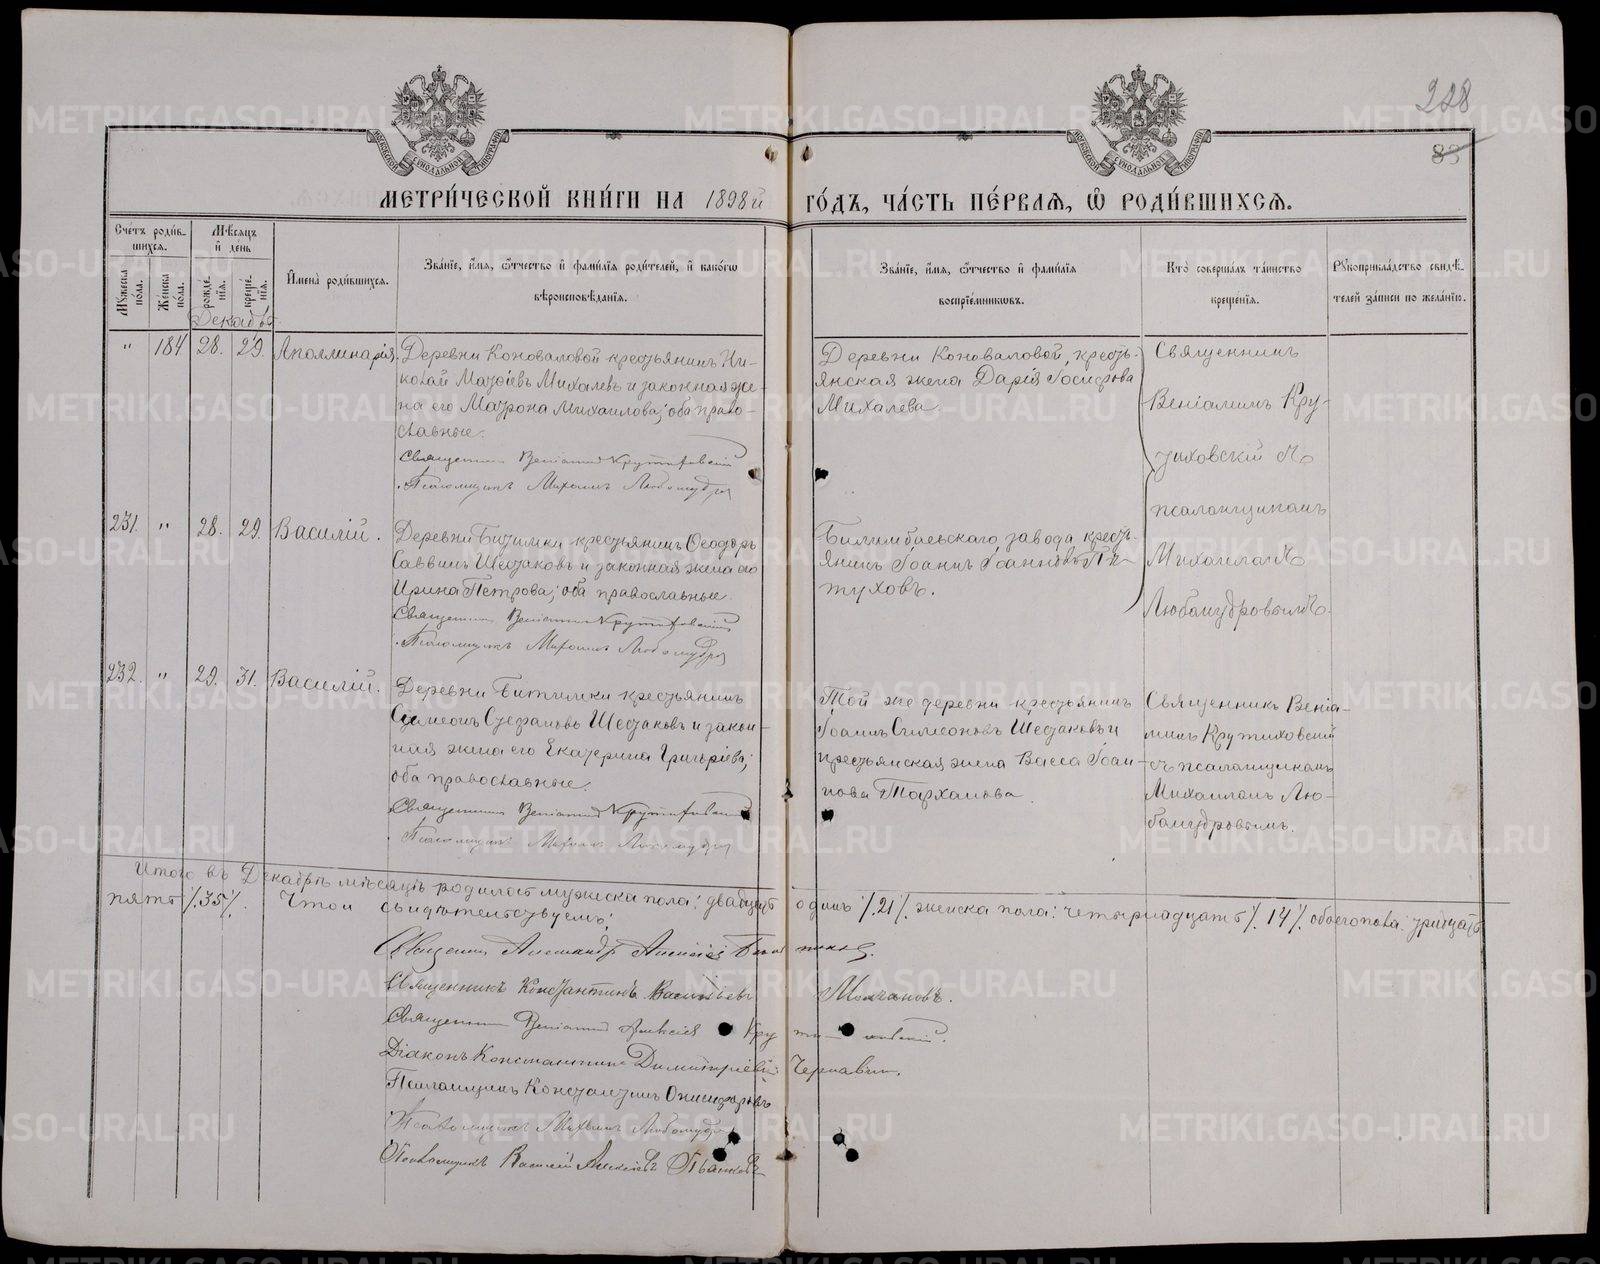 228
83
МЕТРИ́ЧЕСКОЙ КНИ́ГИ НА 1898й ГО́ДЪ, ЧА́СТЬ ПЕ́РВАЯ, Ѽ РОДИ́ВШИХСЯ.
Сче́тъ роди́в-
шихся.
Мѣ́сяцъ
и҆ де́нь
Мꙋ́жеска
по́ла.
Же́нска
по́ла.
рожде-
нїѧ.
креще-
нїѧ.
И҆мена̀ роди́вшихся.
Зва́нїе, и҆́мѧ, ѻ҆́тчество и҆ фами́лїѧ роди́телей, и҆ како́гѡ
вѣроисповѣ́данїѧ.
Зва́нїе, и҆́мѧ, ѻ҆́тчество и҆ фами́лїѧ
воспрїе́мникѡвъ.
Кто̀ соверша́лъ та́инство
креще́нїѧ.
Рꙋкоприкла́дство свидѣ́-
телей за́писи по жела́нїю.
Декабрь
" 184 28. 29. Аполлинарія.
Деревни Коноваловой крестьянинъ Ни-
колай Матѳіевъ Михалевъ и законная же-
на его Матрона Михаилова; оба право-
славные.
Священникъ Веніаминъ Крутиховскій
Псаломщикъ Михаилъ Любомудровъ
Деревни Коноваловой, кресть-
янская жена Дарія Іосифова
Михалева.
Священникъ
Веніаминъ Кру-
тиховскій съ
псаломщикомъ
Михаиломъ
Любомудровымъ.
231. " 28. 29. Василій.
Деревни Битимки крестьянинъ Ѳеодоръ
Саввинъ Шестаковъ и законная жена его
Ирина Петрова; оба православные.
Священникъ Веніаминъ Крутиховскій
Псаломщикъ Михаилъ Любомудровъ
Билимбаевскаго завода кресть-
янинъ Іоаннъ Іоанновъ Пѣ-
туховъ.
232. " 29. 31. Василій.
Деревни Битимки крестьянинъ
Симеонъ Стефановъ Шестаковъ и закон-
ная жена его Екатерина Григорьева;
оба православные.
Священникъ Веніаминъ Крутиховскій
Псаломщикъ Михаилъ Любомудровъ
Той же деревни крестьянинъ
Іоаннъ Симеоновъ Шестаковъ и
крестьянская жена Васса Іоан-
нова Тарханова.
Священникъ Веніа-
минъ Крутиховскій
съ псаломщикомъ
Михаиломъ Лю-
бомудровымъ.
Итого въ Декабрѣ мѣсяцѣ родилось мужеска пола: двадцать одинъ /.21/. женска пола: четырнадцать /.14/. обоего пола: тридцать
пять /.35/. Что и свидѣтельствуемъ:
Священникъ Александръ Алексіев
Священникъ Константинъ Васильевъ Молчановъ.
Священникъ Веніаминъ Алексіев Крутиховскій.
Діаконъ Константинъ Димитріевъ Чернавинъ.
Псаломщикъ Константинъ Онисифоровъ
Псаломщикъ Михаилъ Любомудровъ
Псаломщикъ Василій Алексіевъ
METRIKI.GASO-URAL.RU